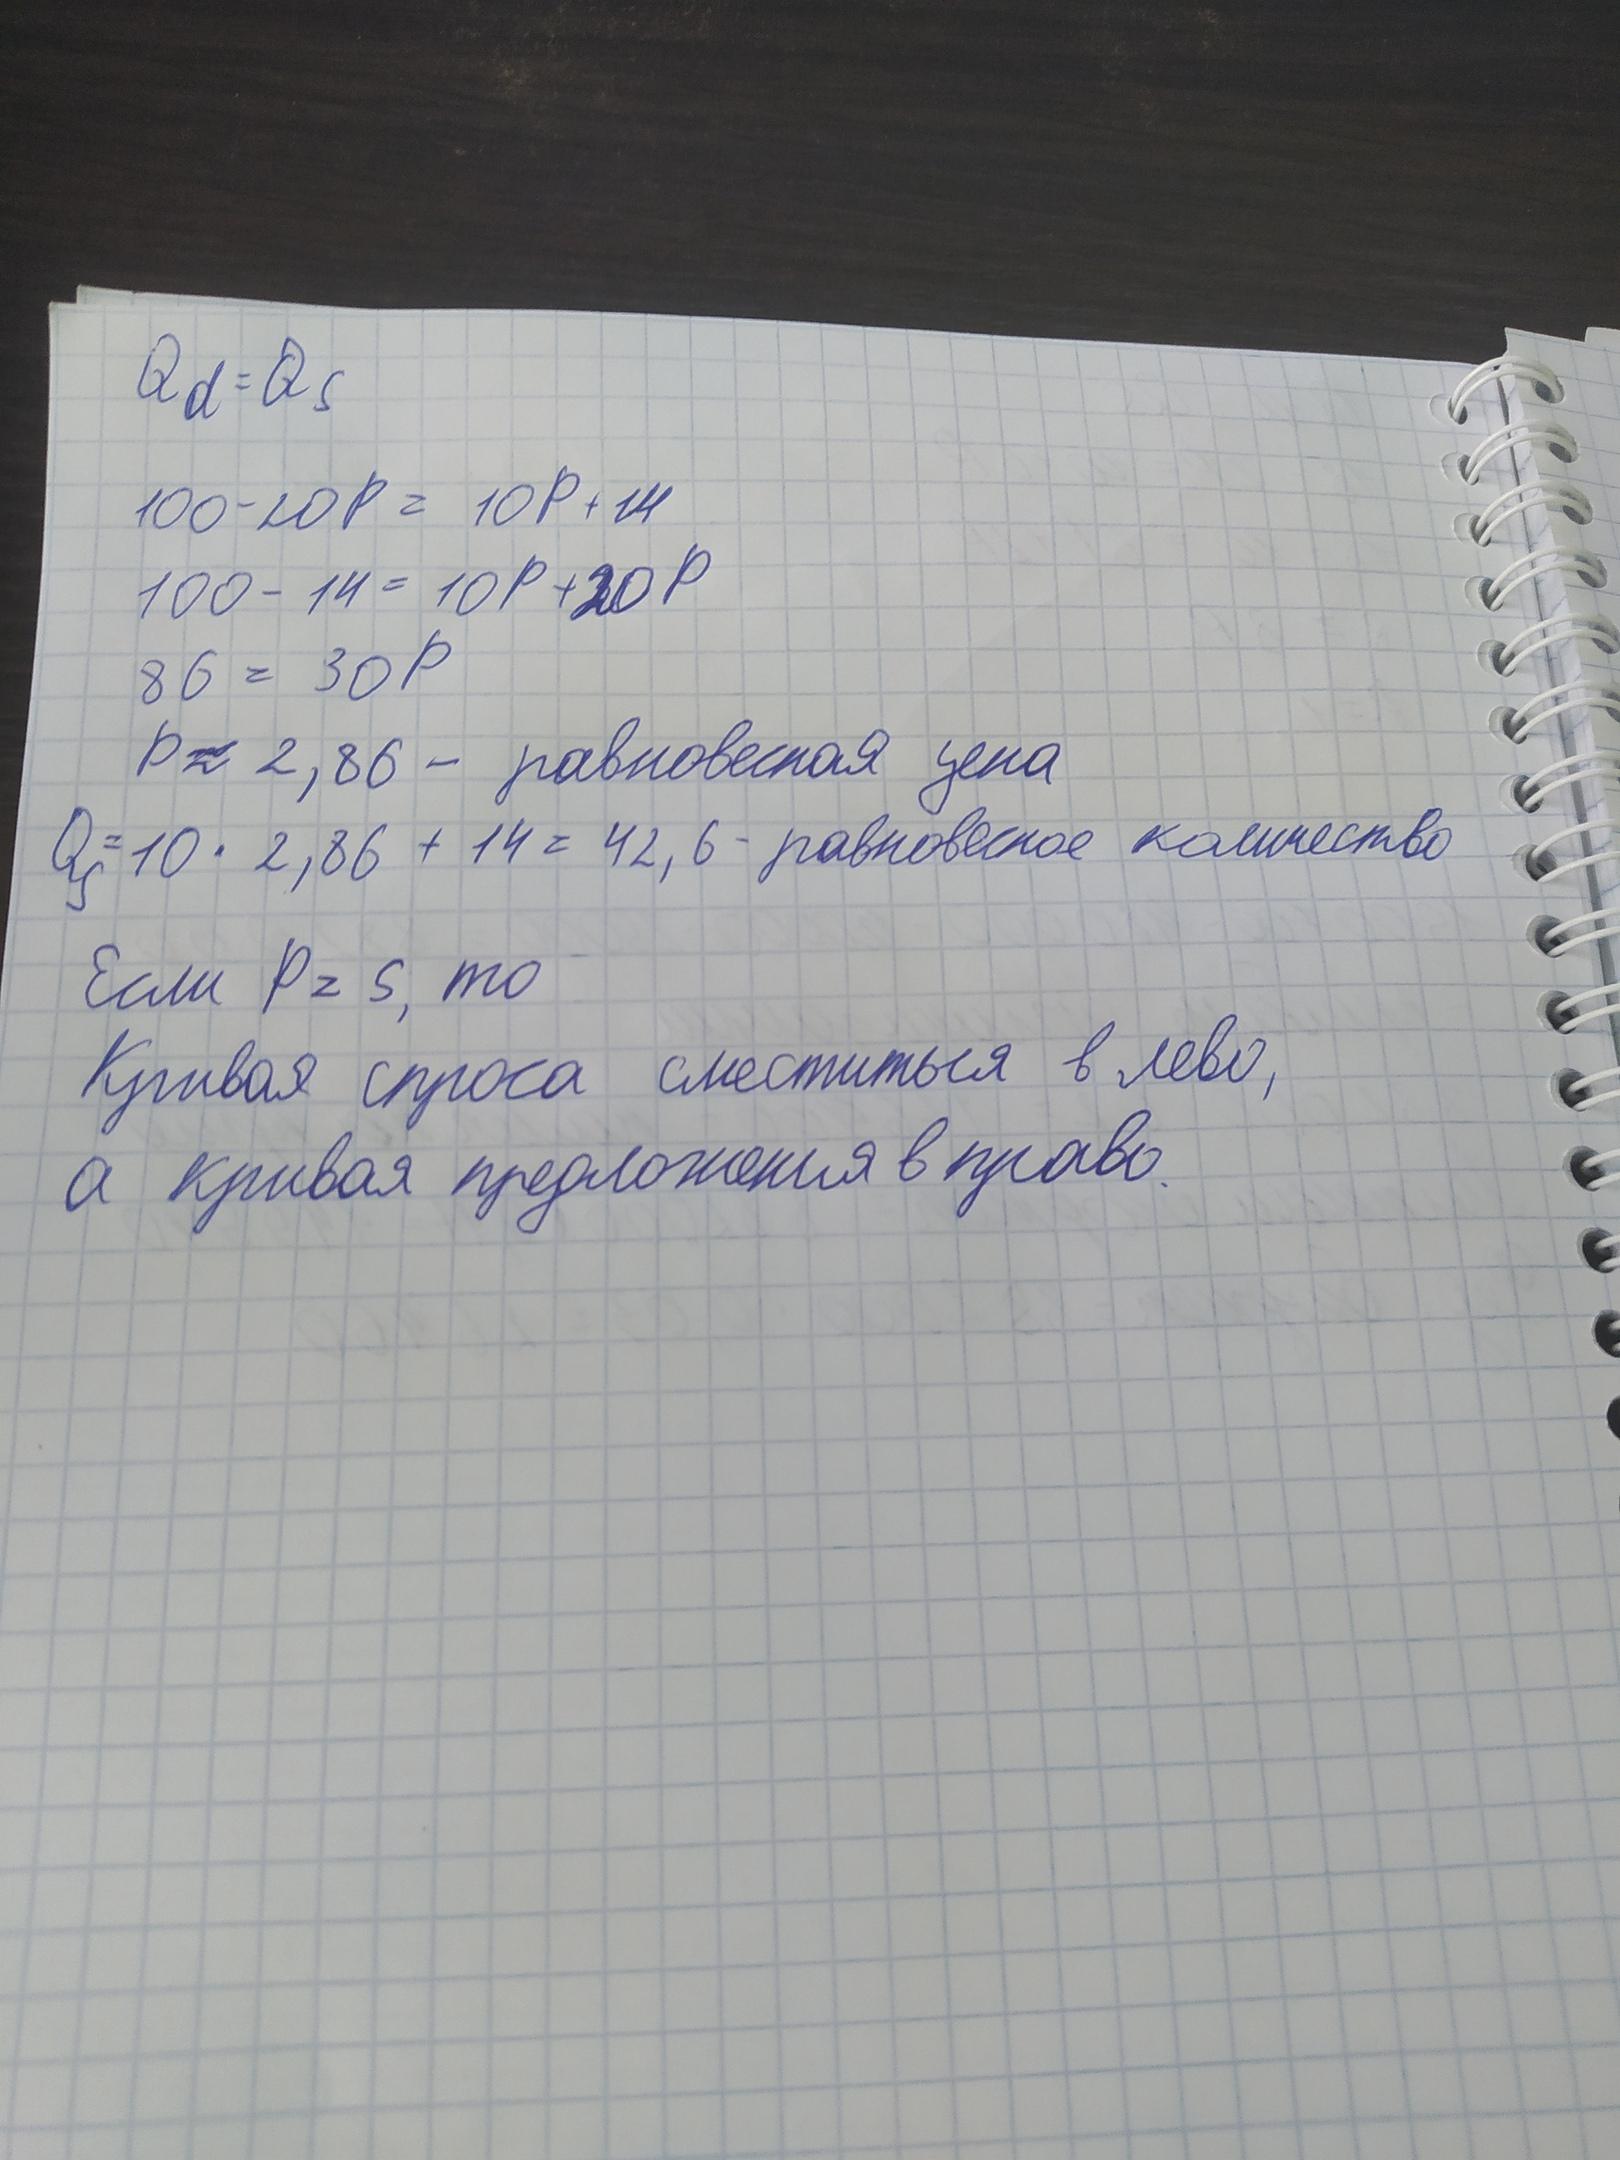 Qd = Qs
100-20P = 10P+14
100-14= 10P+20P
86 = 30P
P≈ 2,86 - равновесная цена
Qs=10·2,86 + 14= 42,6- равновесное количество
Если P= 5, то
Кривая спроса сместиться в лево,
а кривая предложения в право.